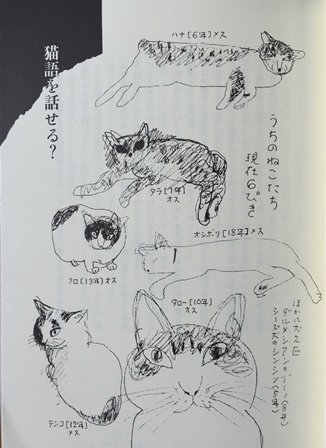 猫語を話せる？
ハナ［6年］メス
うちのねこたち
現在6ぴき
タラ［7年］
オス
オシボリ［18年］メス
クロ［13年］オス
タロー［10年］
オス
テンコ［12年］
メス
ほかに犬2匹
ダルメシアンのリーノ（8年）
シーズ犬のシンシン（5年）